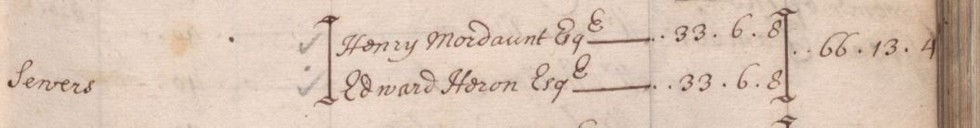 Henry Mordaunt Esqr .. 33 . 6 . 8
.. 66 . 13 . 4
Sewers
Edward Heron Esqr .. 33 . 6 . 8